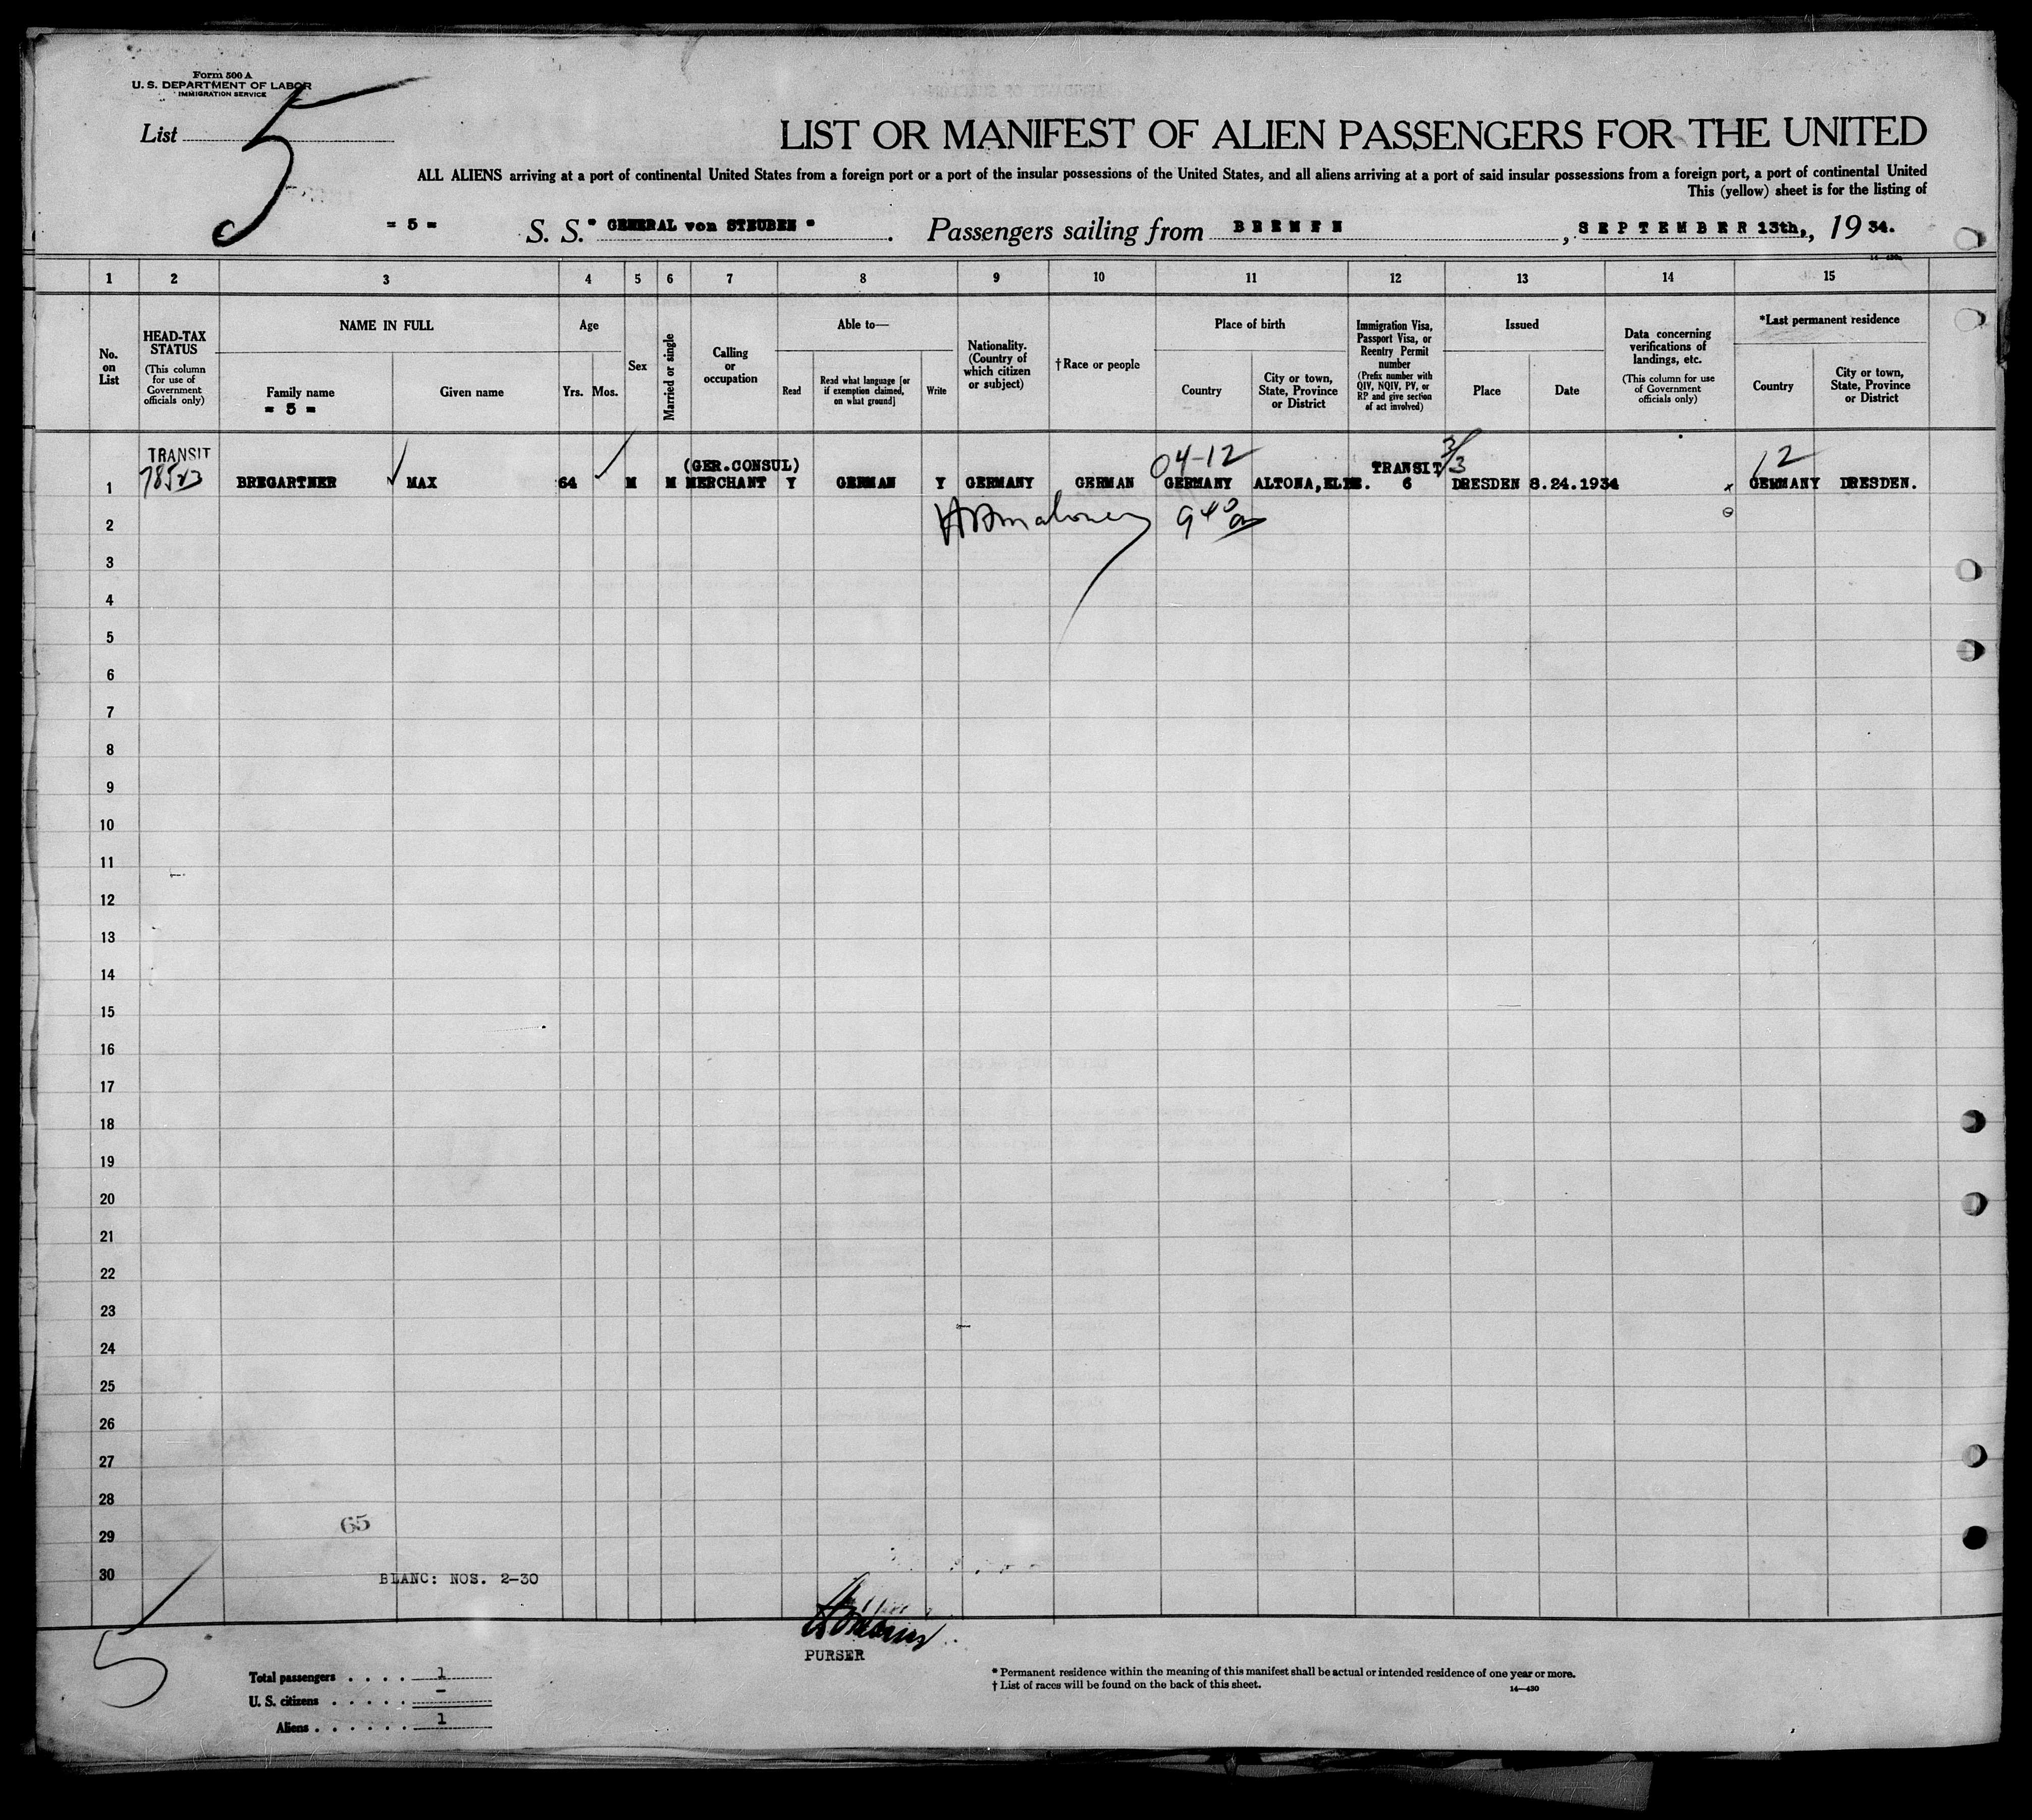 Form 500 A
U. S. DEPARTMENT OF LABOR
IMMIGRATION SERVICE
List 5
LIST OR MANIFEST OF ALIEN PASSENGERS FOR THE UNITED
ALL ALIENS arriving at a port of continental United States from a foreign port or a port of the insular possessions of the United States, and all aliens arriving at a port of said insular possessions from a foreign port, a port of continental United
This (yellow) sheet is for the listing of
= 5 = S. S. " GENERAL von STEUBEN " . Passengers sailing from BREMEN , SEPTEMBER 13th, , 19 34.
1 2 3 4 5 6 7 8 9 10 11 12 13 14 15
No. on List
HEAD-TAX STATUS
(This column for use of Government officials only)
NAME IN FULL
Family name
= 5 =
Given name
Age
Yrs. Mos.
Sex
Married or single
Calling or occupation
Able to—
Read
Read what language [or if exemption claimed, on what ground]
Write
Nationality. (Country of which citizen or subject)
† Race or people
Place of birth
Country
City or town, State, Province or District
Immigration Visa, Passport Visa, or Reentry Permit number
(Prefix number with QIV, NQIV, PV, or RP and give section of act involved)
Issued
Place
Date
Data concerning verifications of landings, etc.
(This column for use of Government officials only)
*Last permanent residence
Country
City or town, State, Province or District
TRANSIT (GER.CONSUL) 04-12 TRANSIT 3/3 12
1 BREGARTNER MAX 64 M M MERCHANT Y GERMAN Y GERMANY GERMAN GERMANY ALTONA, ELBE. 6 DRESDEN 8.24.1934 x GERMANY DRESDEN.
2
3
4
5
6
7
8
9
10
11
12
13
14
15
16
17
18
19
20
21
22
23
24
25
26
27
28
29 65
30 BLANC: NOS. 2-30
5
PURSER
Total passengers . . . . 1
U. S. citizens . . . . . -
Aliens . . . . . . 1
* Permanent residence within the meaning of this manifest shall be actual or intended residence of one year or more.
† List of races will be found on the back of this sheet.
14—430